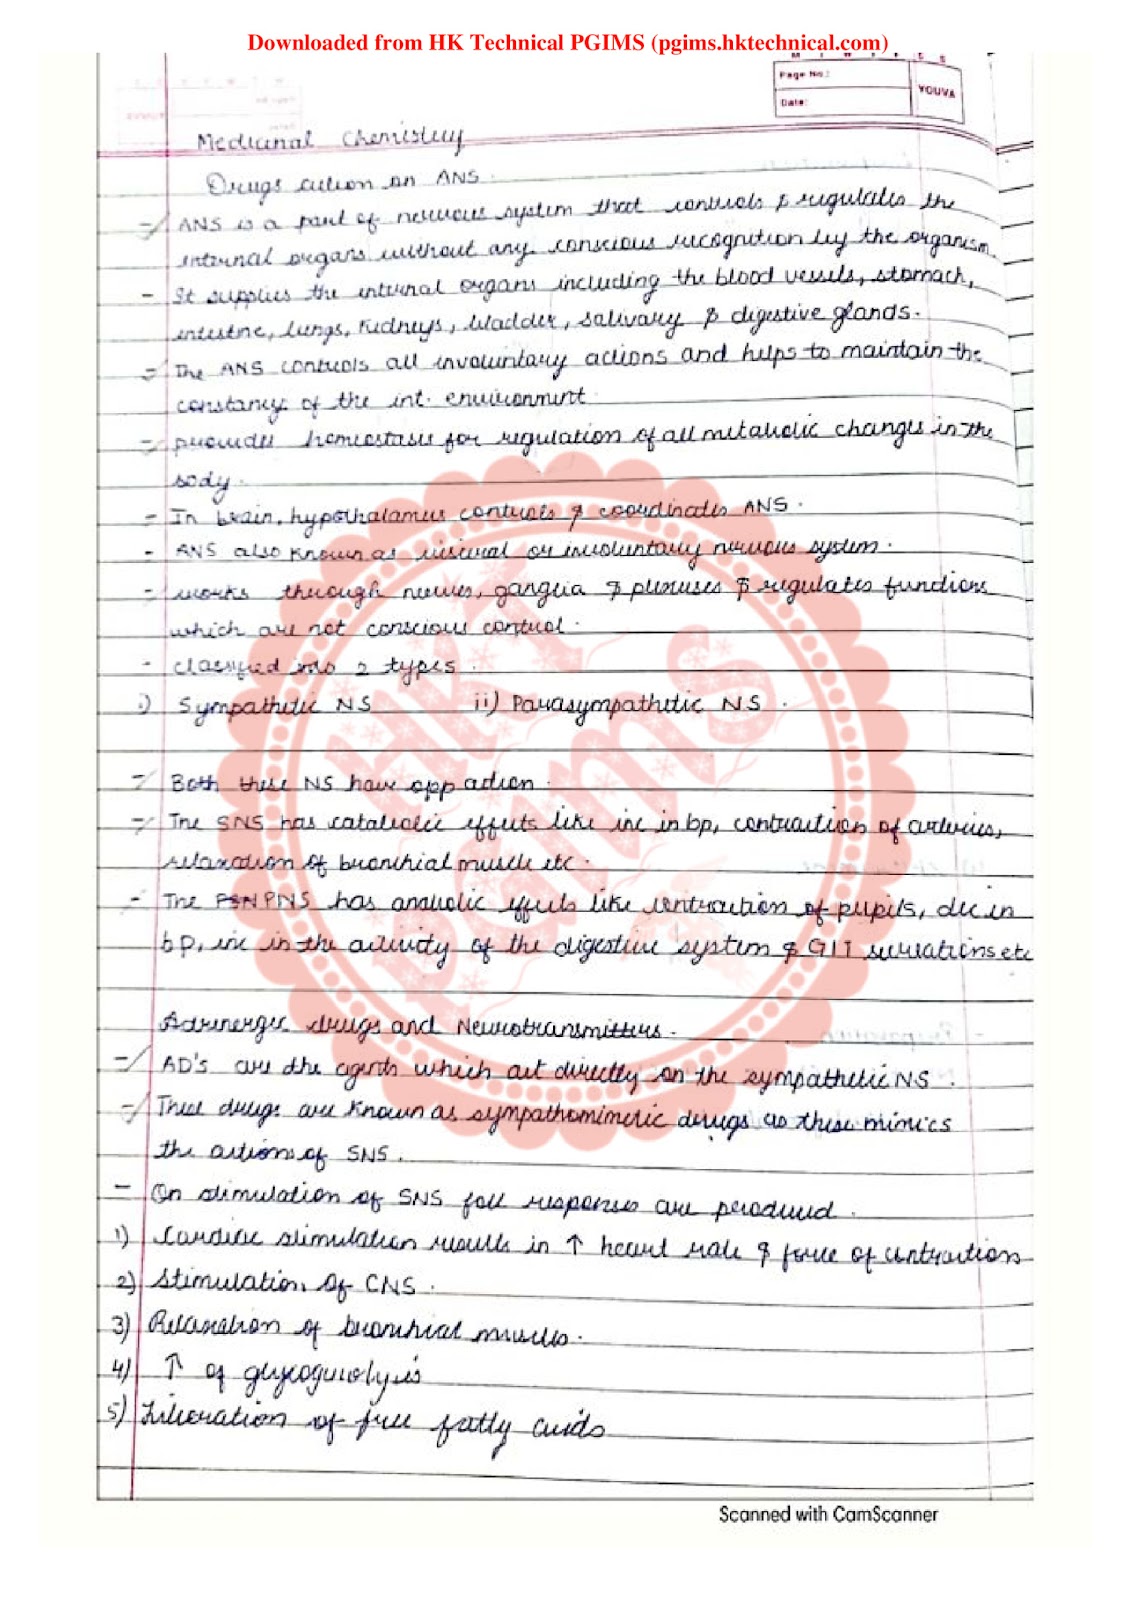 Downloaded from HK Technical PGIMS (pgims.hktechnical.com)
Page No.:
Date:
YOUVA
Medicinal Chemistry
Drugs action on ANS.
- ANS is a part of nervous system that controls & regulates the
internal organs without any conscious recognition by the organism.
- It supplies the internal organs including the blood vessels, stomach,
intestine, lungs, kidneys, bladder, salivary & digestive glands.
- The ANS controls all involuntary actions and helps to maintain the
constancy of the int. environment
- provides homeostasis for regulation of all metabolic changes in the
body.
- In brain, hypothalamus controls & coordinates ANS.
- ANS also known as visceral or involuntary nervous system.
- works through nerves, ganglia & plexuses & regulates functions
which are not conscious control.
- classified into 2 types
i) Sympathetic NS ii) Parasympathetic NS.
- Both these NS have opp action.
- The SNS has catabolic effects like inc in bp, contraction of arteries,
relaxation of bronchial muscle etc.
- The PNS has anabolic effects like contraction of pupils, dec in
bp, inc in the activity of the digestive system & GIT secreations etc
Adrenergic drugs and Neurotransmitters.
- AD's are the agents which act directly on the sympathetic NS.
- These drugs are known as sympathomimetic drugs as these mimics
the actions of SNS.
- On stimulation of SNS foll responses are produced.
1) Cardiac stimulation results in ↑ heart rate & force of contraction
2) Stimulation of CNS.
3) Relaxation of bronchial muscles.
4) ↑ of glycogenolysis
5) Liberation of free fatty acids
HK
PGIMS
Scanned with CamScanner